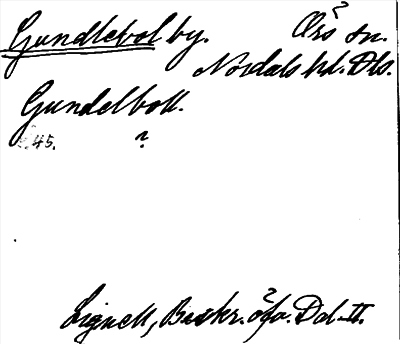 Gundlebol by. Ørs sn.
Nordals hd. Dls.
Gundelboll.
45. ?
Lignell, Beskr. öfv. Dal. II.